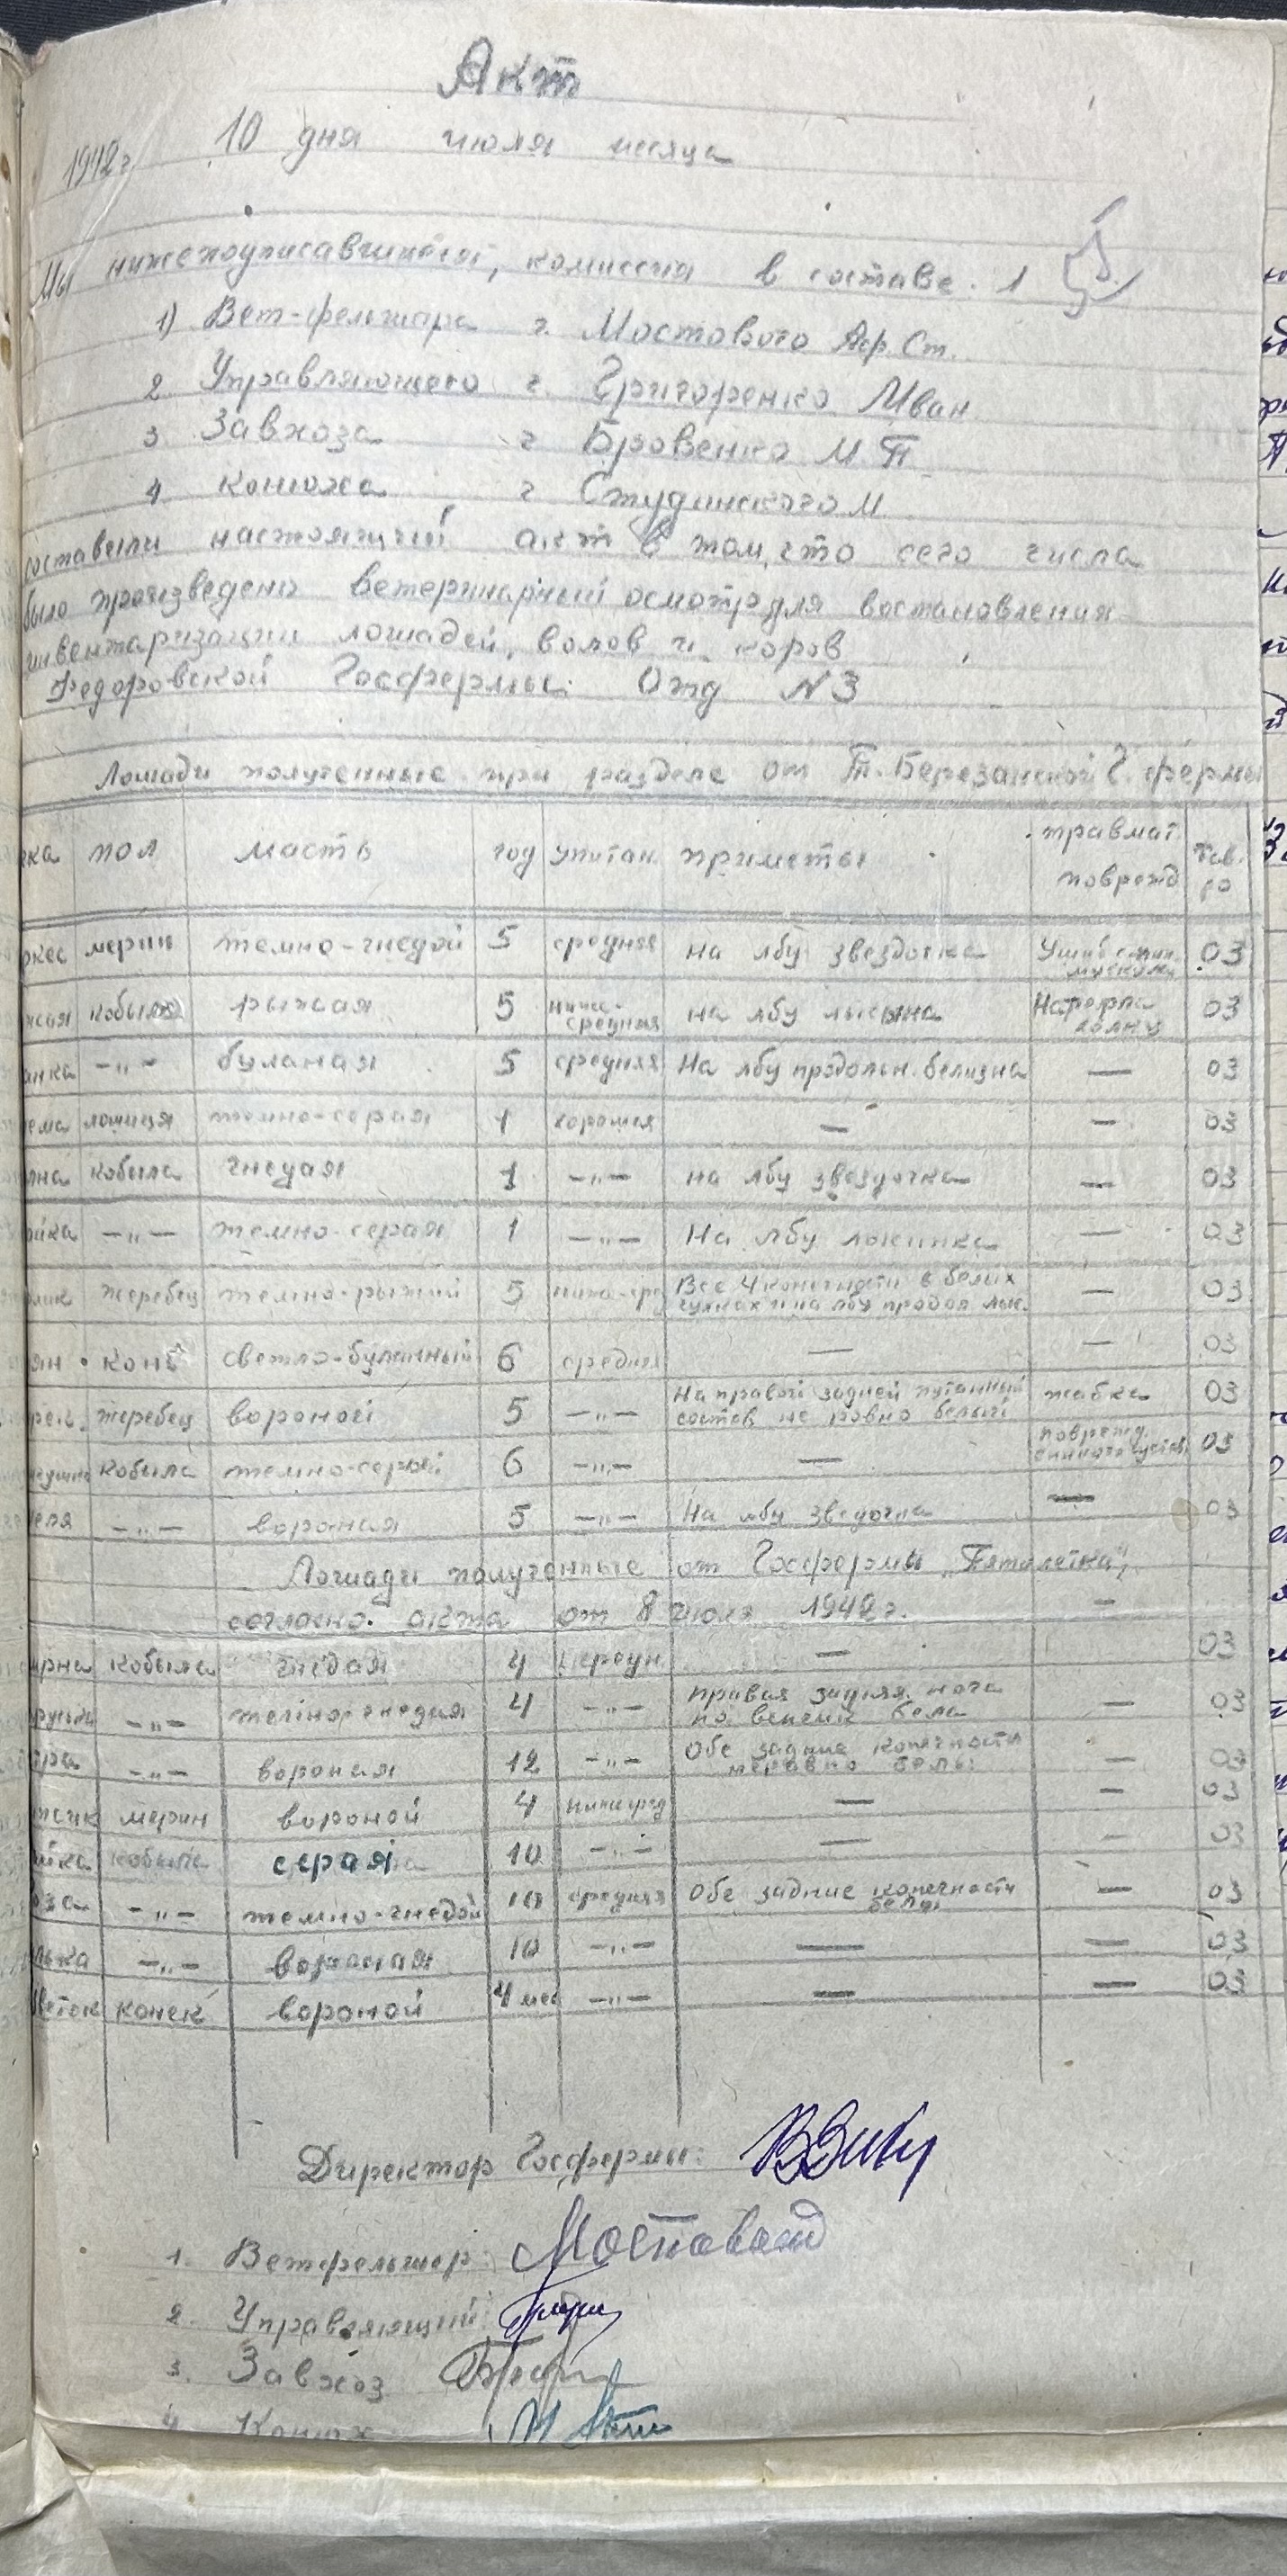 Акт
1942 г 10 дня июля месяца
Мы нижеподписавшиеся, комиссия в составе: 1
1) Вет-фельшара г. Мостового Аф. Ст.
2 Управляющего г. Григоренко Иван
3 Завхоза г Бровенко И. П.
4 конюха г Студинского И
составили настоящий акт в том, что сего числа
было произведено ветеринарный осмотр для востановления
инвентаризации лошадей, волов и коров
Федоровской Госфермы Отд №3
Лошади полученные при разделе от Т. Березанской Г. фермы
чка пол масть год упитан приметы травмат поврежд Тав-ро
ркес мерин темно-гнедой 5 средняя на лбу звездочка Ушиб 03
жая кобыла рыжая 5 ниже-средняя на лбу лысина холку 03
анка -„- буланая 5 средняя На лбу продольн. белизна — 03
ема лошиця темно-серая 1 хорошая — — 03
лна кобыла гнедая 1 -„- на лбу звездочка — 03
ойка -„- темно-серая 1 -„- На лбу — 03
лик жеребец темно-рыжий 5 ниже-сред Все 4 конечности в белых
чулках и на лбу продол лыс. — 03
ян конь светло-буланный 6 средняя — — 03
жеребец вороной 5 -„- На правой задней путанный
состав не ровно белый жабка 03
кобыла темно-серой 6 -„- — поврежд. 03
еля -„- вороная 5 -„- На лбу зведочка — 03
Лошади полученные от Госфермы „Пятилетка",
согласно акта от 8 июля 1942 г. —
ирна кобыла гнедая 4 — 03
-„- темно гнедая 4 -„- правая задняя нога
по венчик бела — 03
тра -„- вороная 12 -„- Обе задние конечности
неравно белы — 03
жик мерин вороной 4 ниже сред — — 03
йка кобыла серая 10 -„- — — 03
оза -„- темно-гнедой 10 средняя Обе задние конечности
белы — 03
лька -„- вороная 10 -„- — — 03
веток конек вороной 4 мес -„- — — 03
Директор Госфермы:
1. Ветфельшер: Мостовой
2. Управляющий
3. Завхоз
4. Конюх